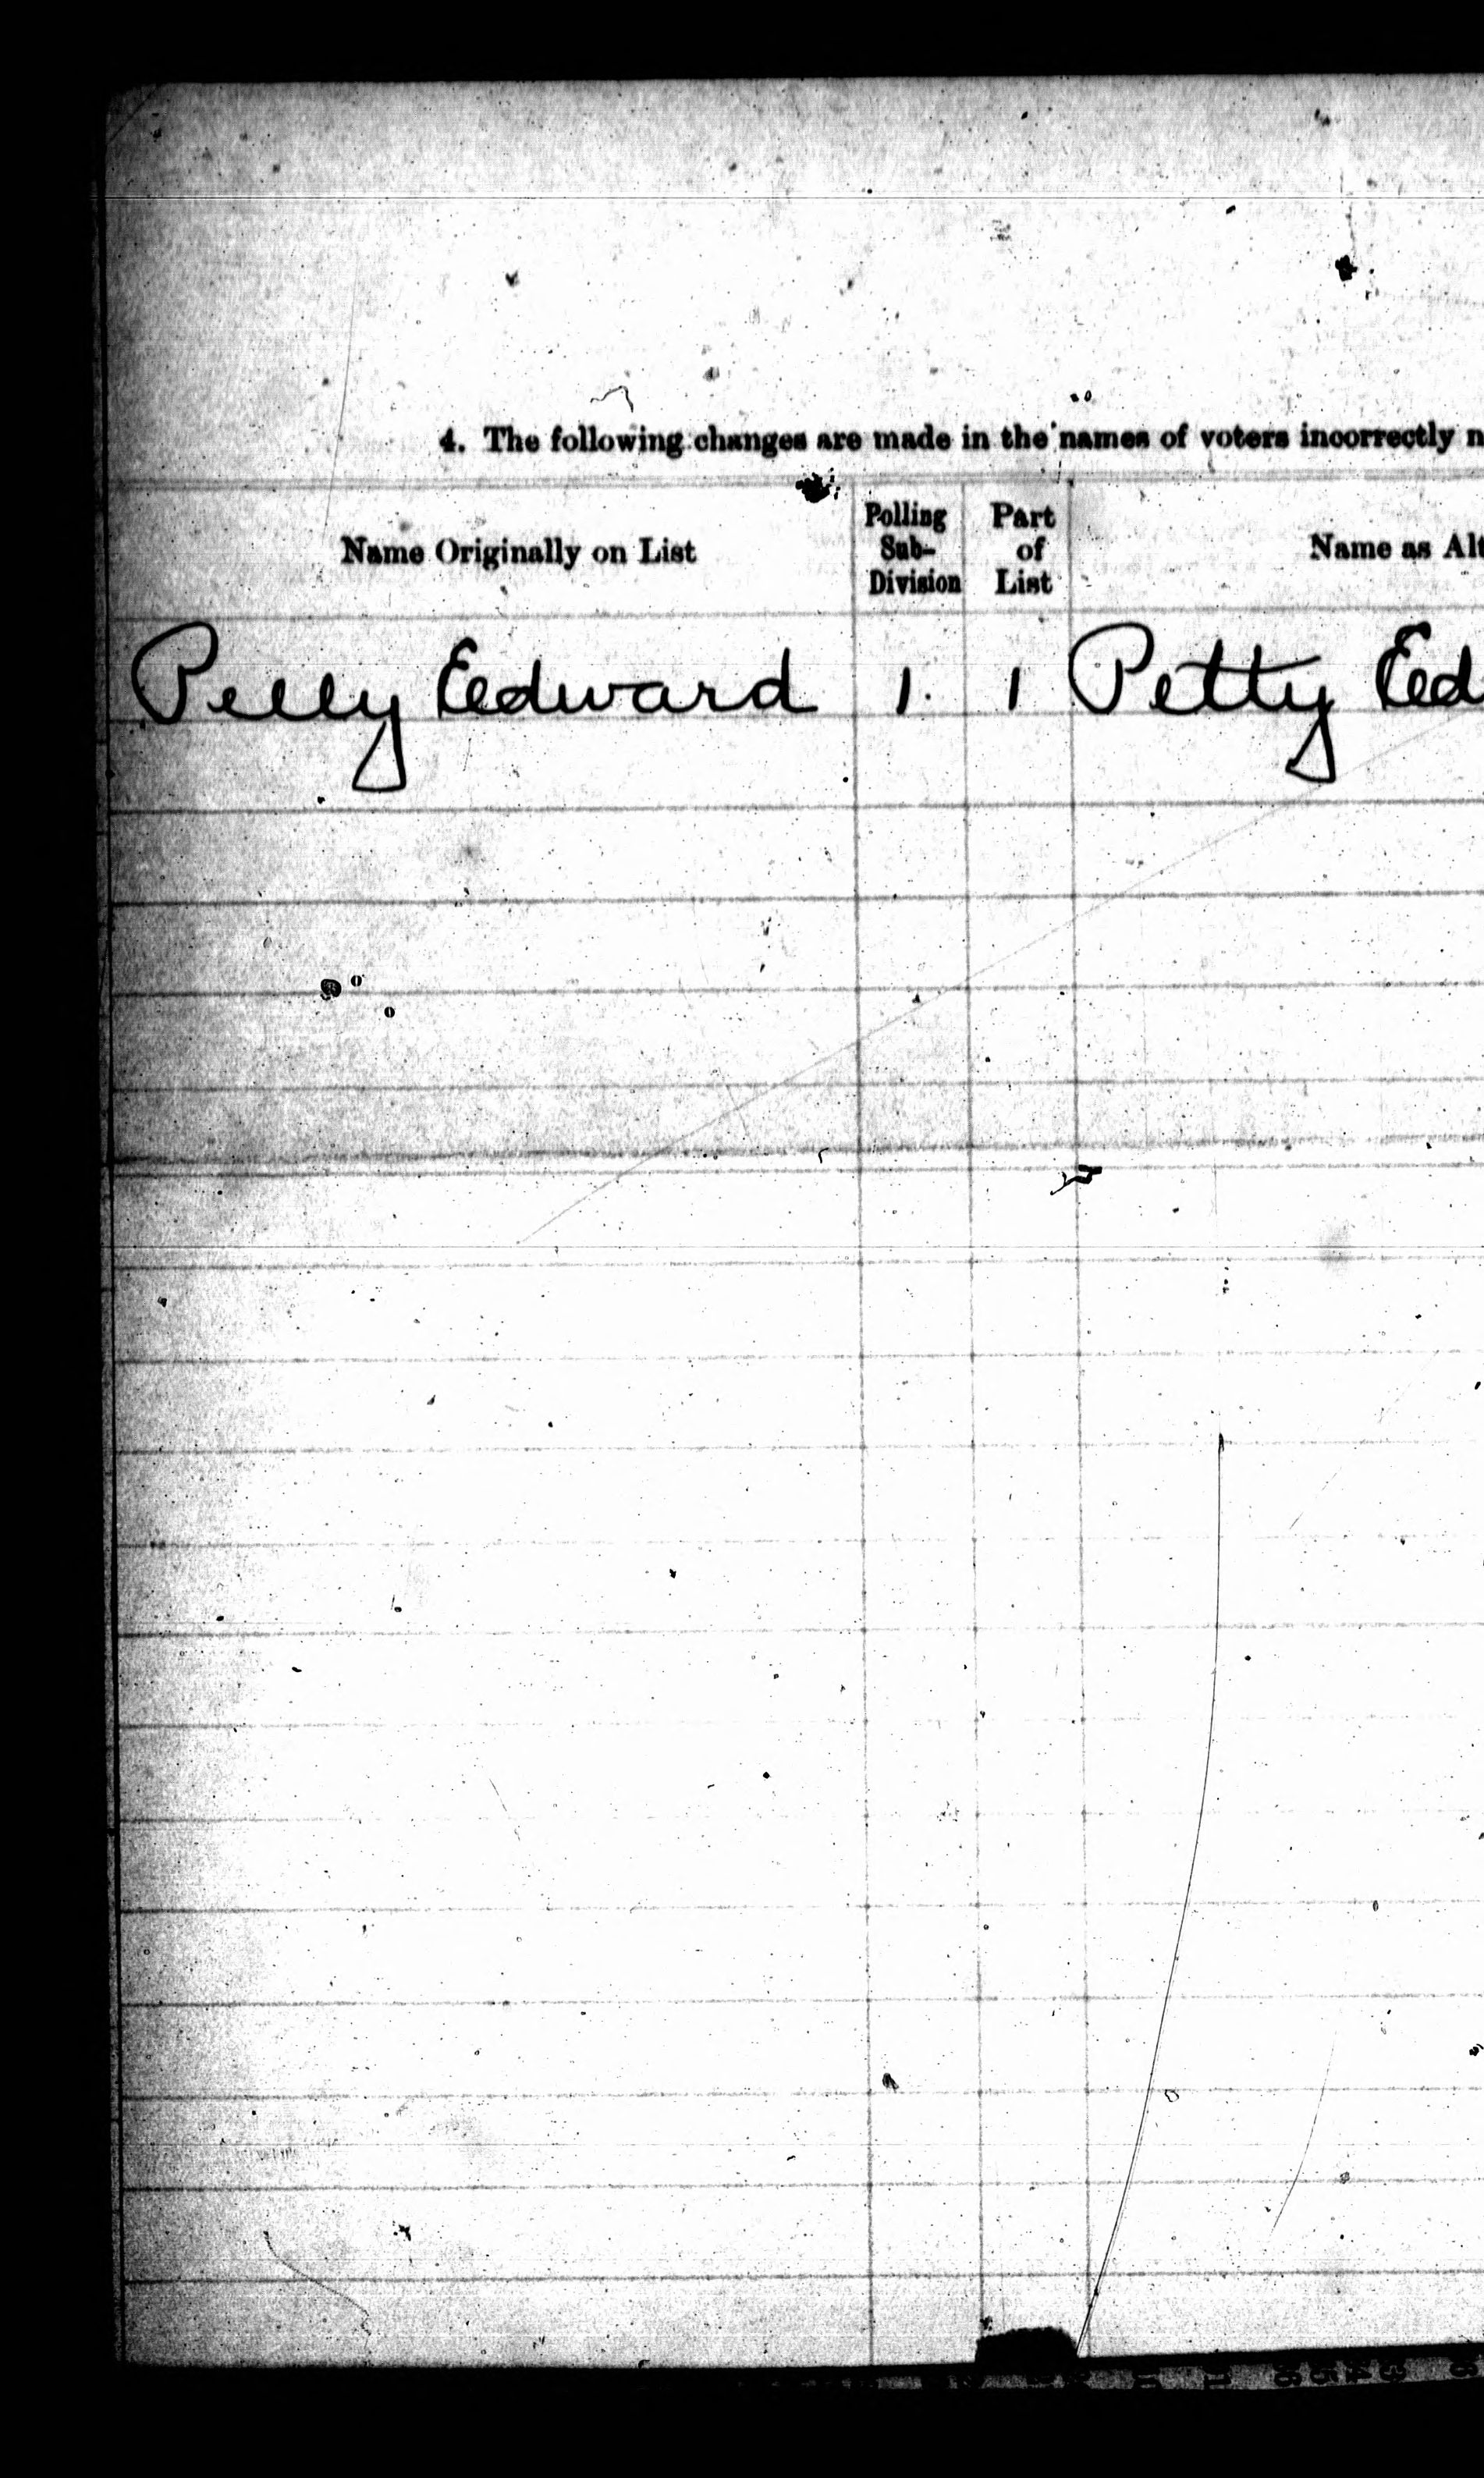 4. The following changes are made in the names of voters incorrectly n
Name Originally on List
Polling
Sub-
Division
Part
of
List
Name as Alt
Pelly Edward 1. 1 Petty Ed